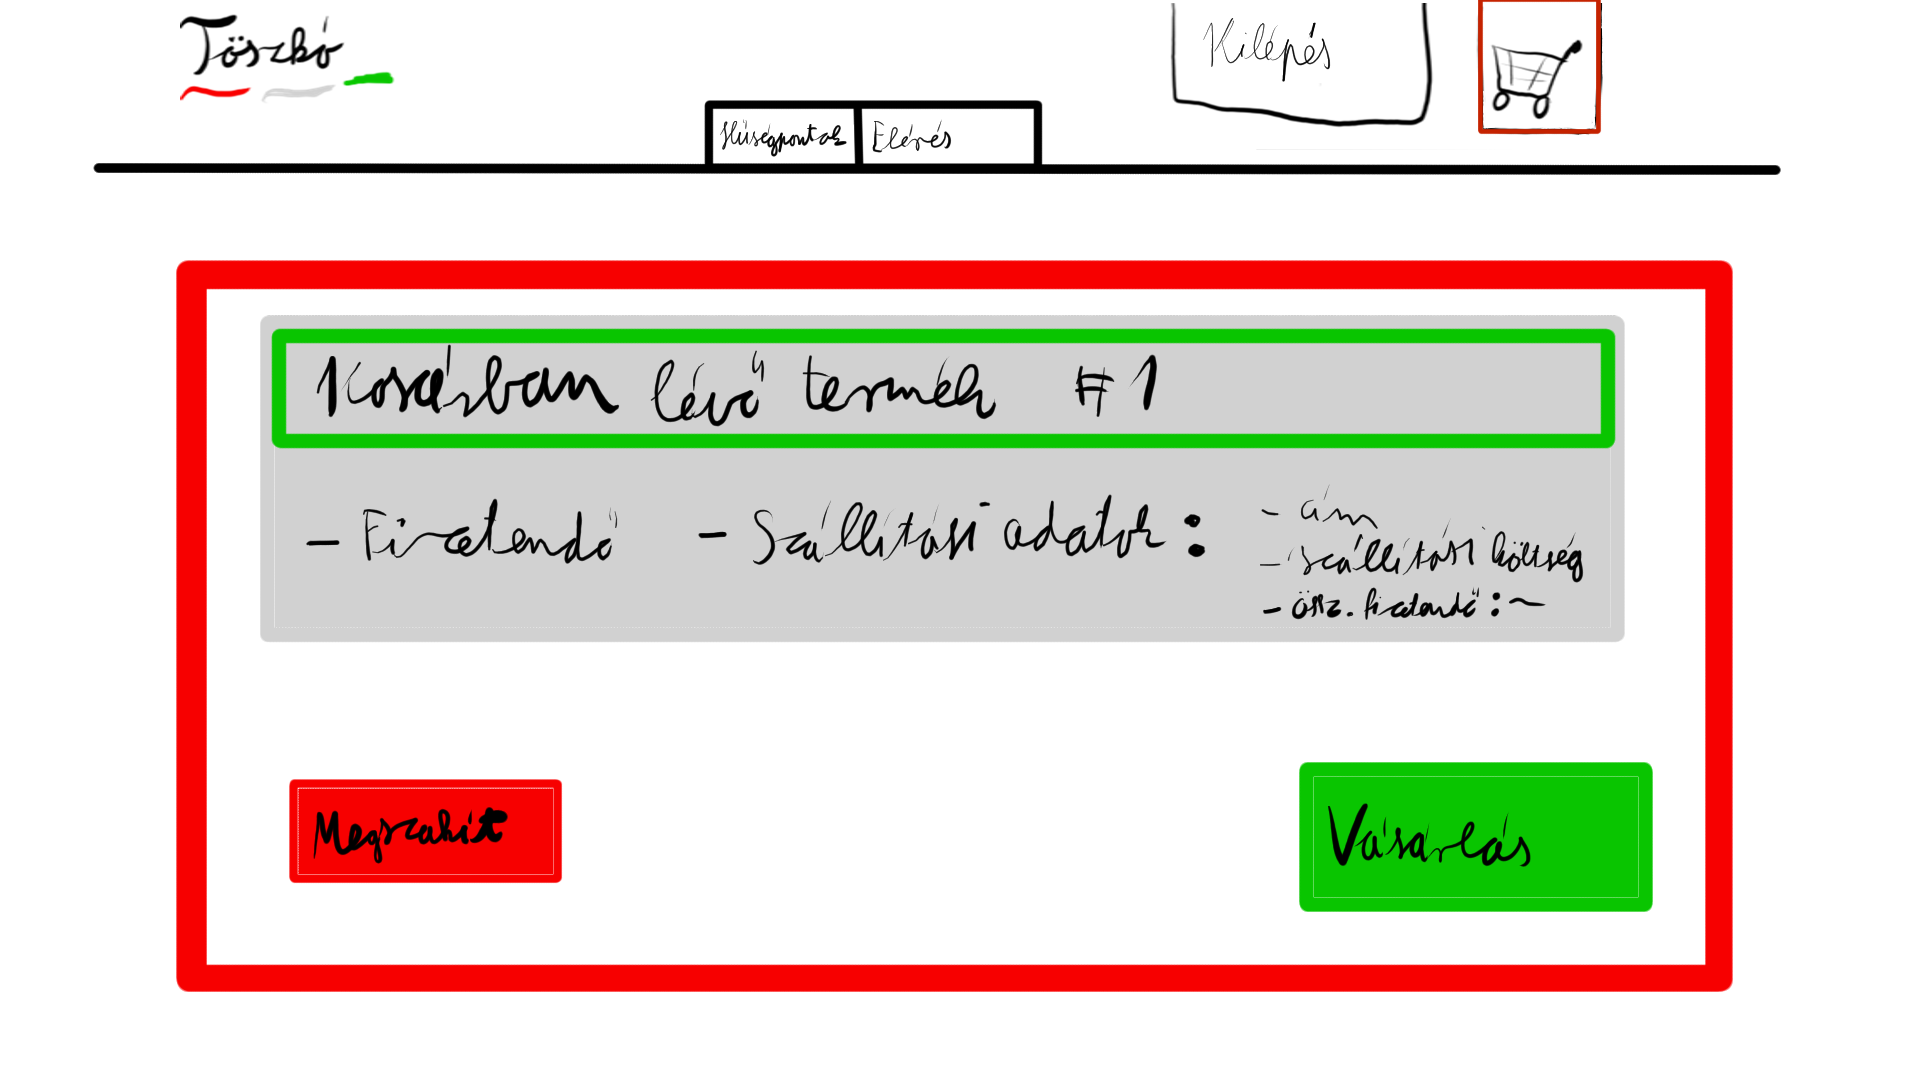 Töszkó
Kilépés
Hűségpontok Elérés
Kosárban lévő termék #1
- Fizetendő - Szállítási adatok:
- ám
- szállítási költség
- össz. fizetendő: ~
Megszakít
Vásárlás